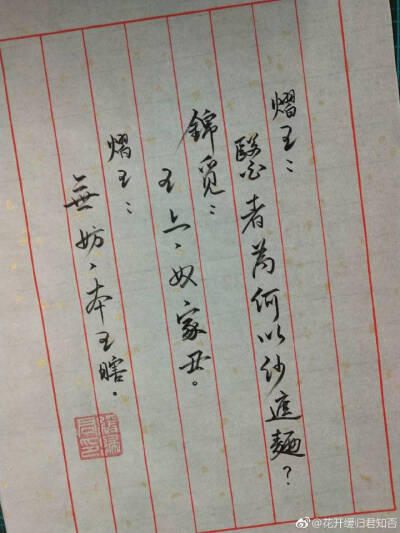 熠王：
醫者為何以紗遮麵？
錦覓：
王上、奴家丑。
熠王：
無妨、本王瞎.
@花开缓归君知否